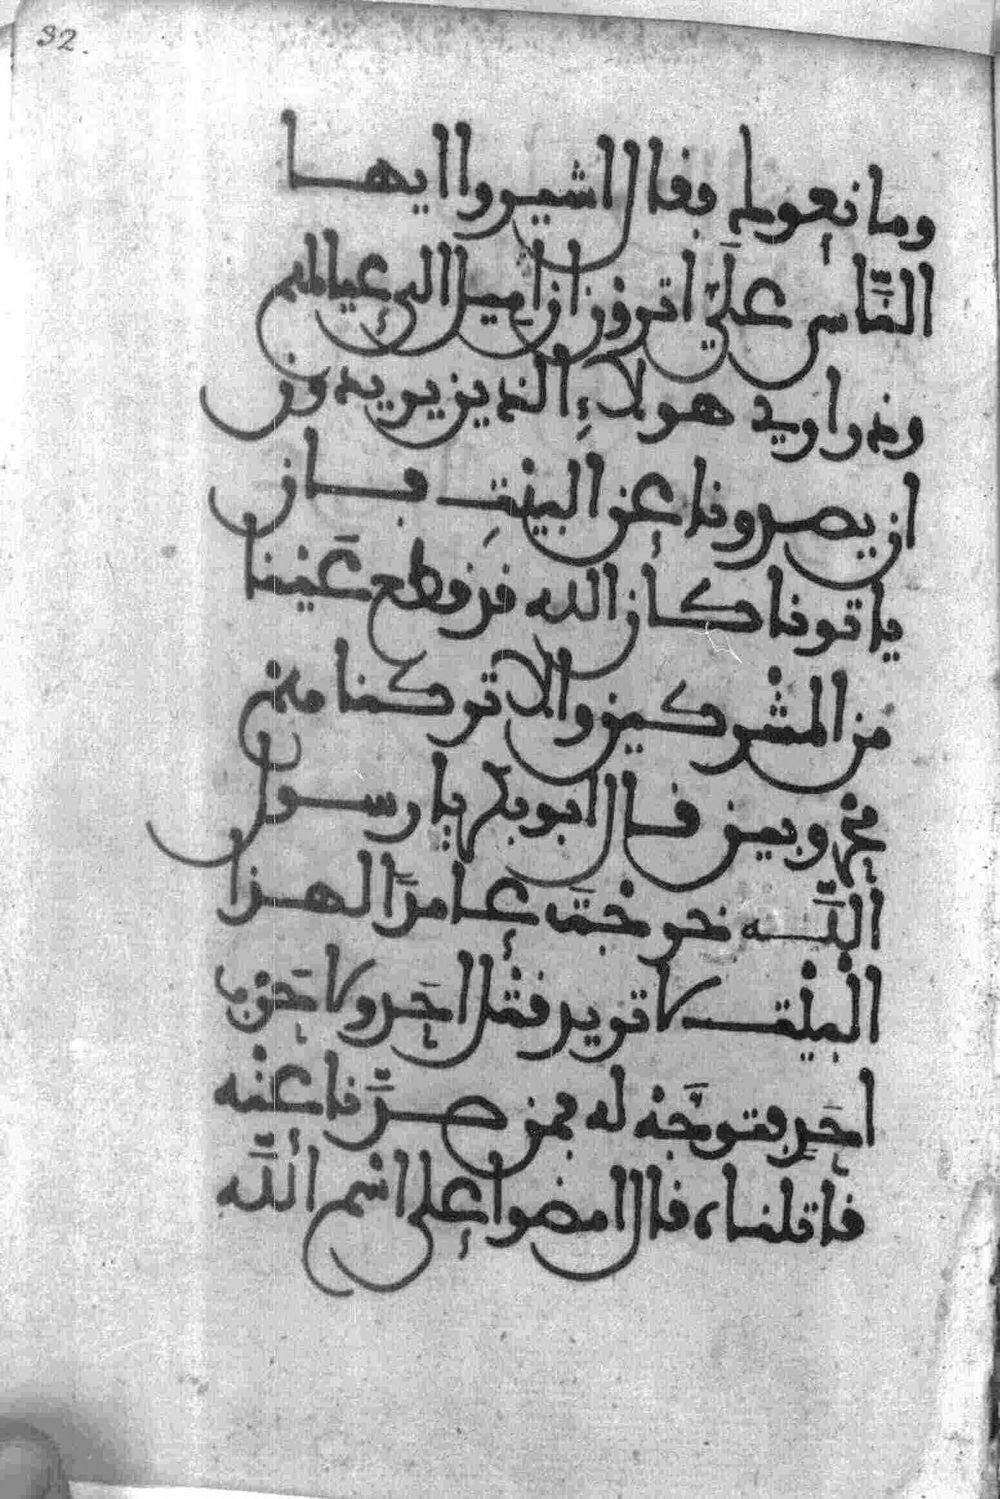 32.
ومانعوك فقال اشيروا ايها
النَّاس علَيّ اترون ان اميل الى عيالهم
وذراري هولاءِ الذين يريدون
ان يصدونا عن البيتِ فان
ياتونا كان الله قد قطع عَيْنا
من المشْركين والا تركناهم
محْروبين قال ابو بكر يا رسول
اللَّه خرجْتَ عامدًا لهذا
الْبيْت لا تريد قتْل احَد ولا حَرْب
احَد فتوجَّهْ له فمن صدَّنا عنْه
قاتلْناه قال امضوا على اسْم اللَّه